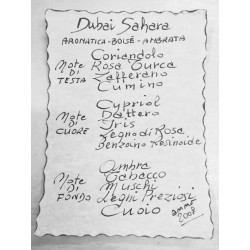 Dubai Sahara
AROMATICA-BOISÈ-AMBRATA
Coriandolo
Note Rosa Turca
DI Zafferano
TESTA Cumino
Cypriol
Note Dattero
DI Iris
CUORE Legno di Rosa
Benzoino Resinoide
Ombra
Note Tabacco
DI Muschi
FONDO Legni Preziosi
Cuoio
2008